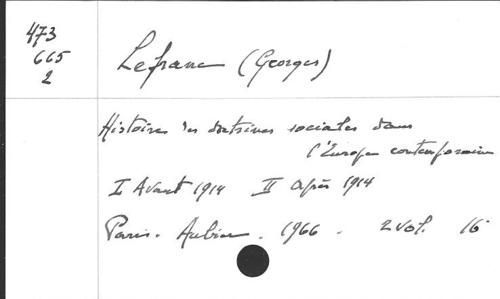 473
665
2
Lefranc (Georges)
Histoire des doctrines sociales dans
l'Europe contemporaine
I Avant 1914 II après 1914
Paris. Aubier. 1966. 2 vol. 16